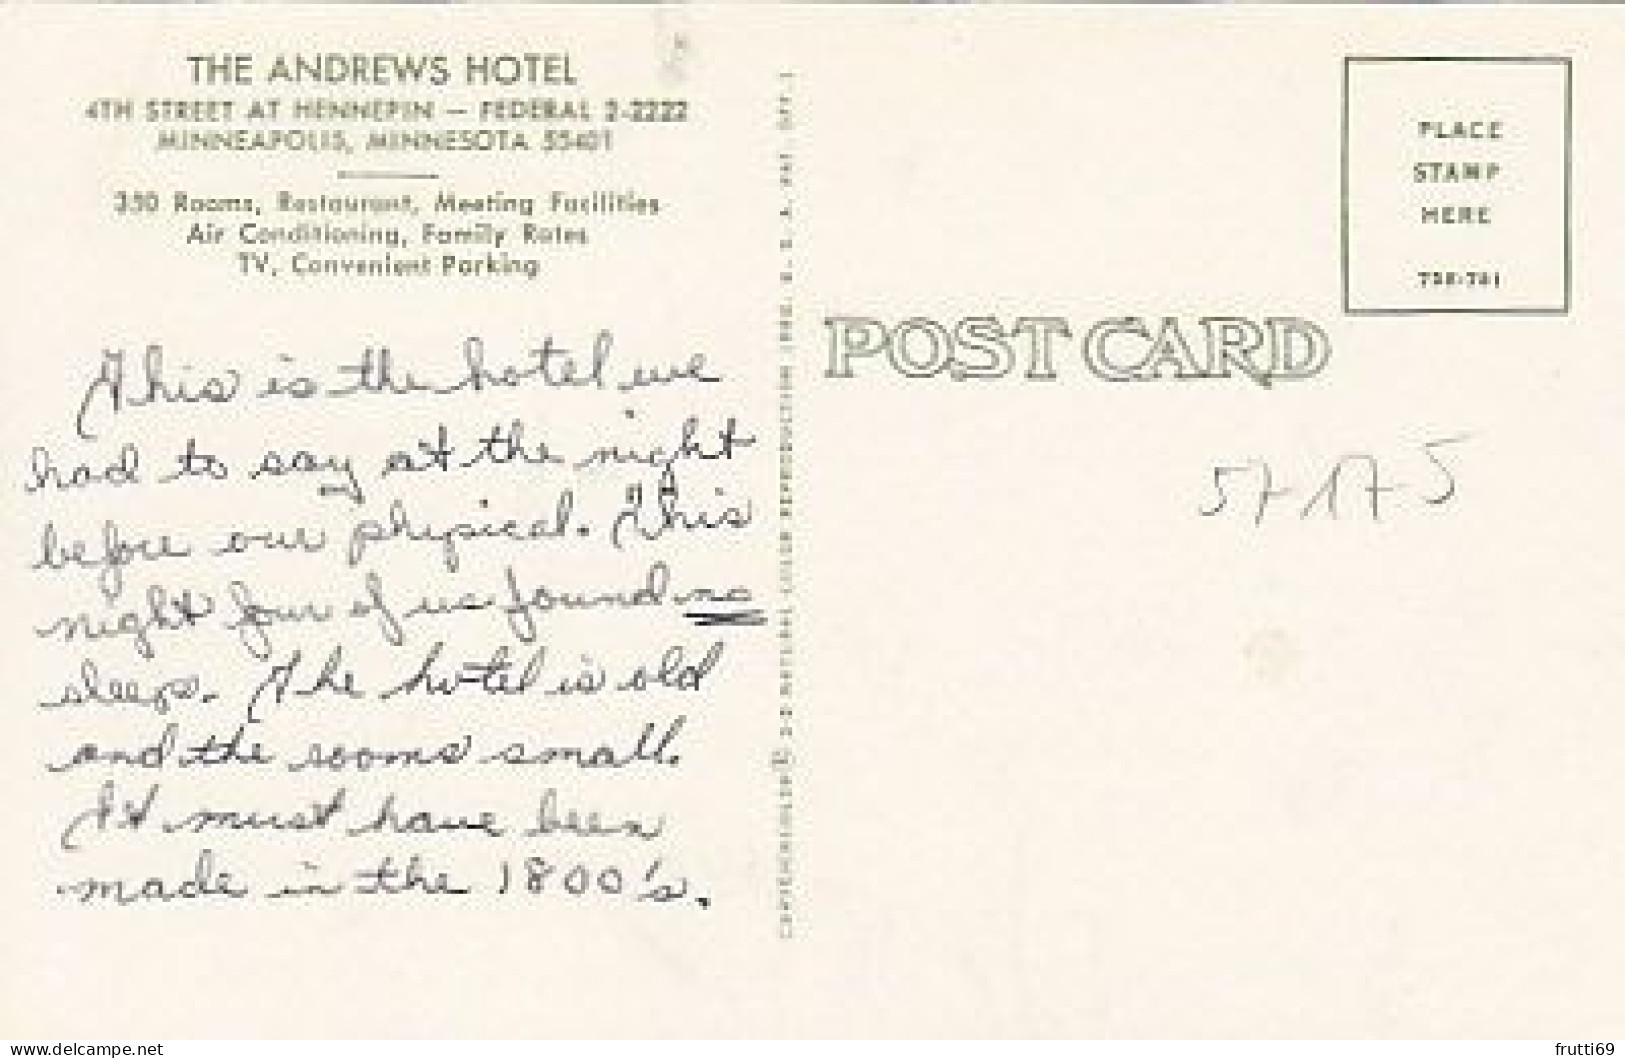 THE ANDREWS HOTEL
4TH STREET AT HENNEPIN — FEDERAL 2-2222
MINNEAPOLIS, MINNESOTA 55401
350 Rooms, Restaurant, Meeting Facilities
Air Conditioning, Family Rates
TV, Convenient Parking
This is the hotel we
had to say at the night
before our physical. This
night four of us found no
sleep. The hotel is old
and the rooms small.
It must have been
made in the 1800's.
PLACE
STAMP
HERE
POST CARD
57-17-5
www.delcampe.net
frutti69